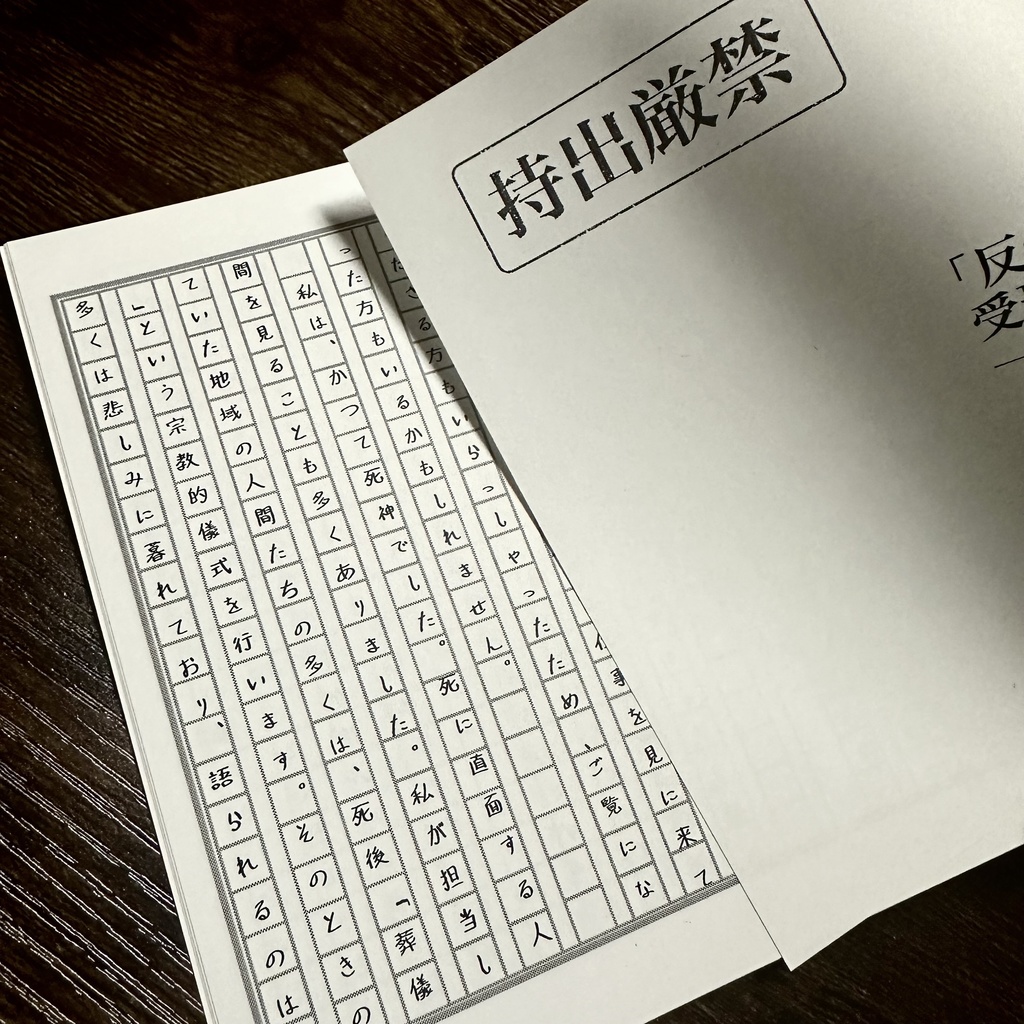 持出厳禁
「反
受
事を見に来て
さる方もいらっしゃったため、ご覧にな
った方もいるかもしれません。
私は、かつて死神でした。死に直面する人
間を見ることも多くありました。私が担当し
ていた地域の人間たちの多くは、死後「葬儀
」という宗教的儀式を行います。そのときの
多くは悲しみに暮れており、語られるのは